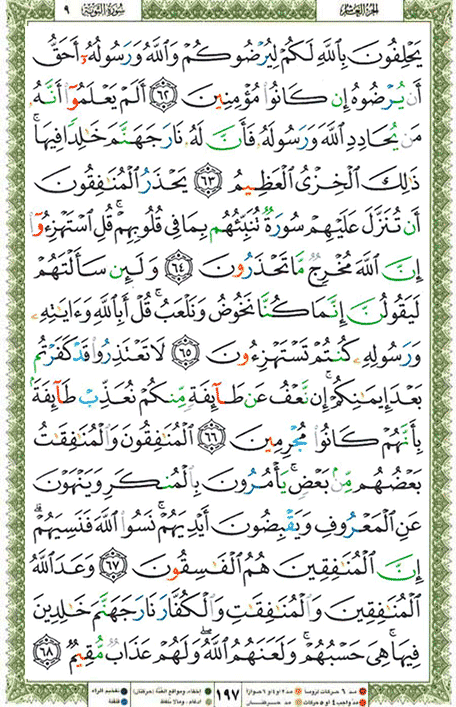 ٩ سُورَةُ التَّوْبَةِ الجُزءُ العَاشِرُ
يَحْلِفُونَ بِٱللَّهِ لَكُمْ لِيُرْضُوكُمْ وَٱللَّهُ وَرَسُولُهُۥٓ أَحَقُّ
أَن يُرْضُوهُ إِن كَانُوا۟ مُؤْمِنِينَ ٦٢ أَلَمْ يَعْلَمُوٓا۟ أَنَّهُۥ
مَن يُحَادِدِ ٱللَّهَ وَرَسُولَهُۥ فَأَنَّ لَهُۥ نَارَ جَهَنَّمَ خَٰلِدًا فِيهَا ۚ
ذَٰلِكَ ٱلْخِزْىُ ٱلْعَظِيمُ ٦٣ يَحْذَرُ ٱلْمُنَٰفِقُونَ
أَن تُنَزَّلَ عَلَيْهِمْ سُورَةٌ تُنَبِّئُهُم بِمَا فِى قُلُوبِهِمْ ۚ قُلِ ٱسْتَهْزِءُوٓا۟
إِنَّ ٱللَّهَ مُخْرِجٌ مَّا تَحْذَرُونَ ٦٤ وَلَئِن سَأَلْتَهُمْ
لَيَقُولُنَّ إِنَّمَا كُنَّا نَخُوضُ وَنَلْعَبُ ۚ قُلْ أَبِٱللَّهِ وَءَايَٰتِهِۦ
وَرَسُولِهِۦ كُنتُمْ تَسْتَهْزِءُونَ ٦٥ لَا تَعْتَذِرُوا۟ قَدْ كَفَرْتُم
بَعْدَ إِيمَٰنِكُمْ ۚ إِن نَّعْفُ عَن طَآئِفَةٍ مِّنكُمْ نُعَذِّبْ طَآئِفَةًۢ
بِأَنَّهُمْ كَانُوا۟ مُجْرِمِينَ ٦٦ ٱلْمُنَٰفِقُونَ وَٱلْمُنَٰفِقَٰتُ
بَعْضُهُم مِّنۢ بَعْضٍ ۚ يَأْمُرُونَ بِٱلْمُنكَرِ وَيَنْهَوْنَ
عَنِ ٱلْمَعْرُوفِ وَيَقْبِضُونَ أَيْدِيَهُمْ ۚ نَسُوا۟ ٱللَّهَ فَنَسِيَهُمْ ۗ
إِنَّ ٱلْمُنَٰفِقِينَ هُمُ ٱلْفَٰسِقُونَ ٦٧ وَعَدَ ٱللَّهُ
ٱلْمُنَٰفِقِينَ وَٱلْمُنَٰفِقَٰتِ وَٱلْكُفَّارَ نَارَ جَهَنَّمَ خَٰلِدِينَ
فِيهَا ۚ هِىَ حَسْبُهُمْ ۚ وَلَعَنَهُمُ ٱللَّهُ ۖ وَلَهُمْ عَذَابٌ مُّقِيمٌ ٦٨
١٩٧
مد ٦ حركات لزوماً مد ٢ او ٤ او ٦ جوازاً إخفاء، ومواقع الغُنَّة (حركتان) تفخيم الراء
مد واجب ٤ او ٥ حركات مد حركتان ادغام، وما لا يُلفَظ قلقلة